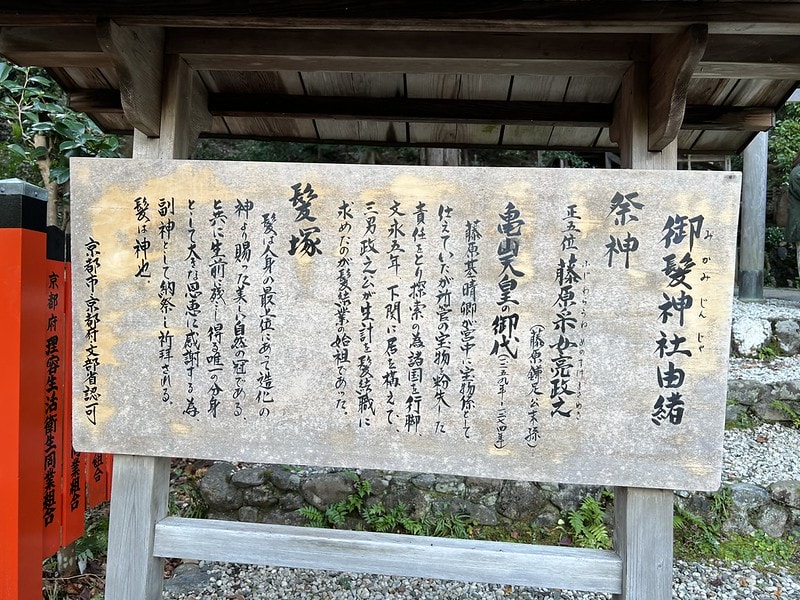 御髪神社由緒
みかみじんじゃ
祭神
正五位 藤原采女亮政之
ふじわらうねめのすけまさゆき
（藤原鎌足公末孫）
亀山天皇の御代（一二五九年～一二七四年）
藤原基晴卿が宮中に宝物係として
仕えていたが所管の宝物を紛失した
責任をとり探索の為諸国を行脚、
文永五年、下関に居を構えて、
三男政之公が生計を髪結職に
求めたのが髪結業の始祖であった。
髪塚
髪は人身の最上位にあって造化の
神より賜った美しい自然の冠である。
と共に生前に残し得る唯一の分身
として大きな恩恵に感謝する為
副神として納祭し祈拝される。
髪は神也。
京都市・京都府・文部省認可
京都府理容生活衛生同業組合
同業組合
組合